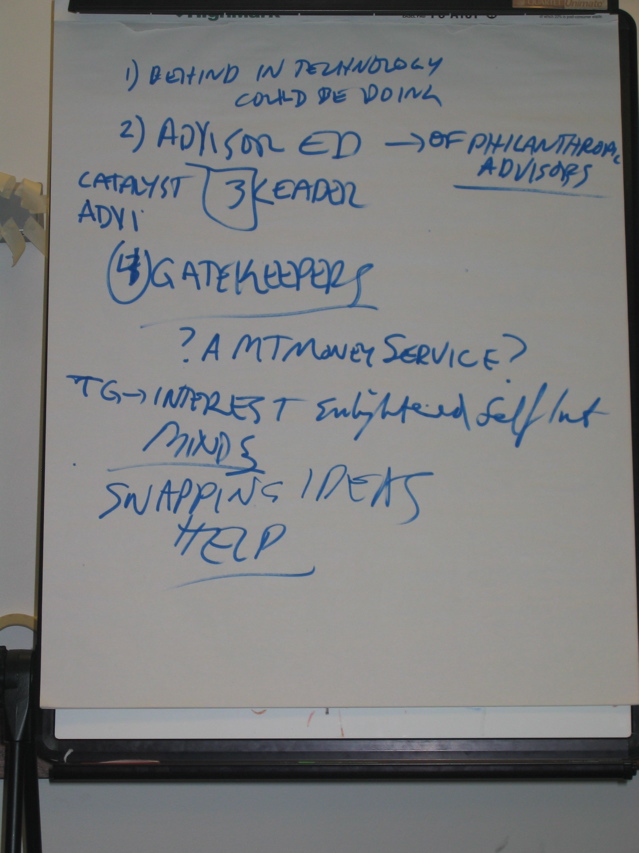 1) BEHIND IN TECHNOLOGY
COULD BE DOING
2) ADVISOR ED → OF PHILANTHROPIC
ADVISORS
CATALYST 3 LEADER
ADVI
4) GATEKEEPERS
? A MT MONEY SERVICE?
TG → INTEREST Enlightened Self Int
MINDS
SWAPPING IDEAS
HELP